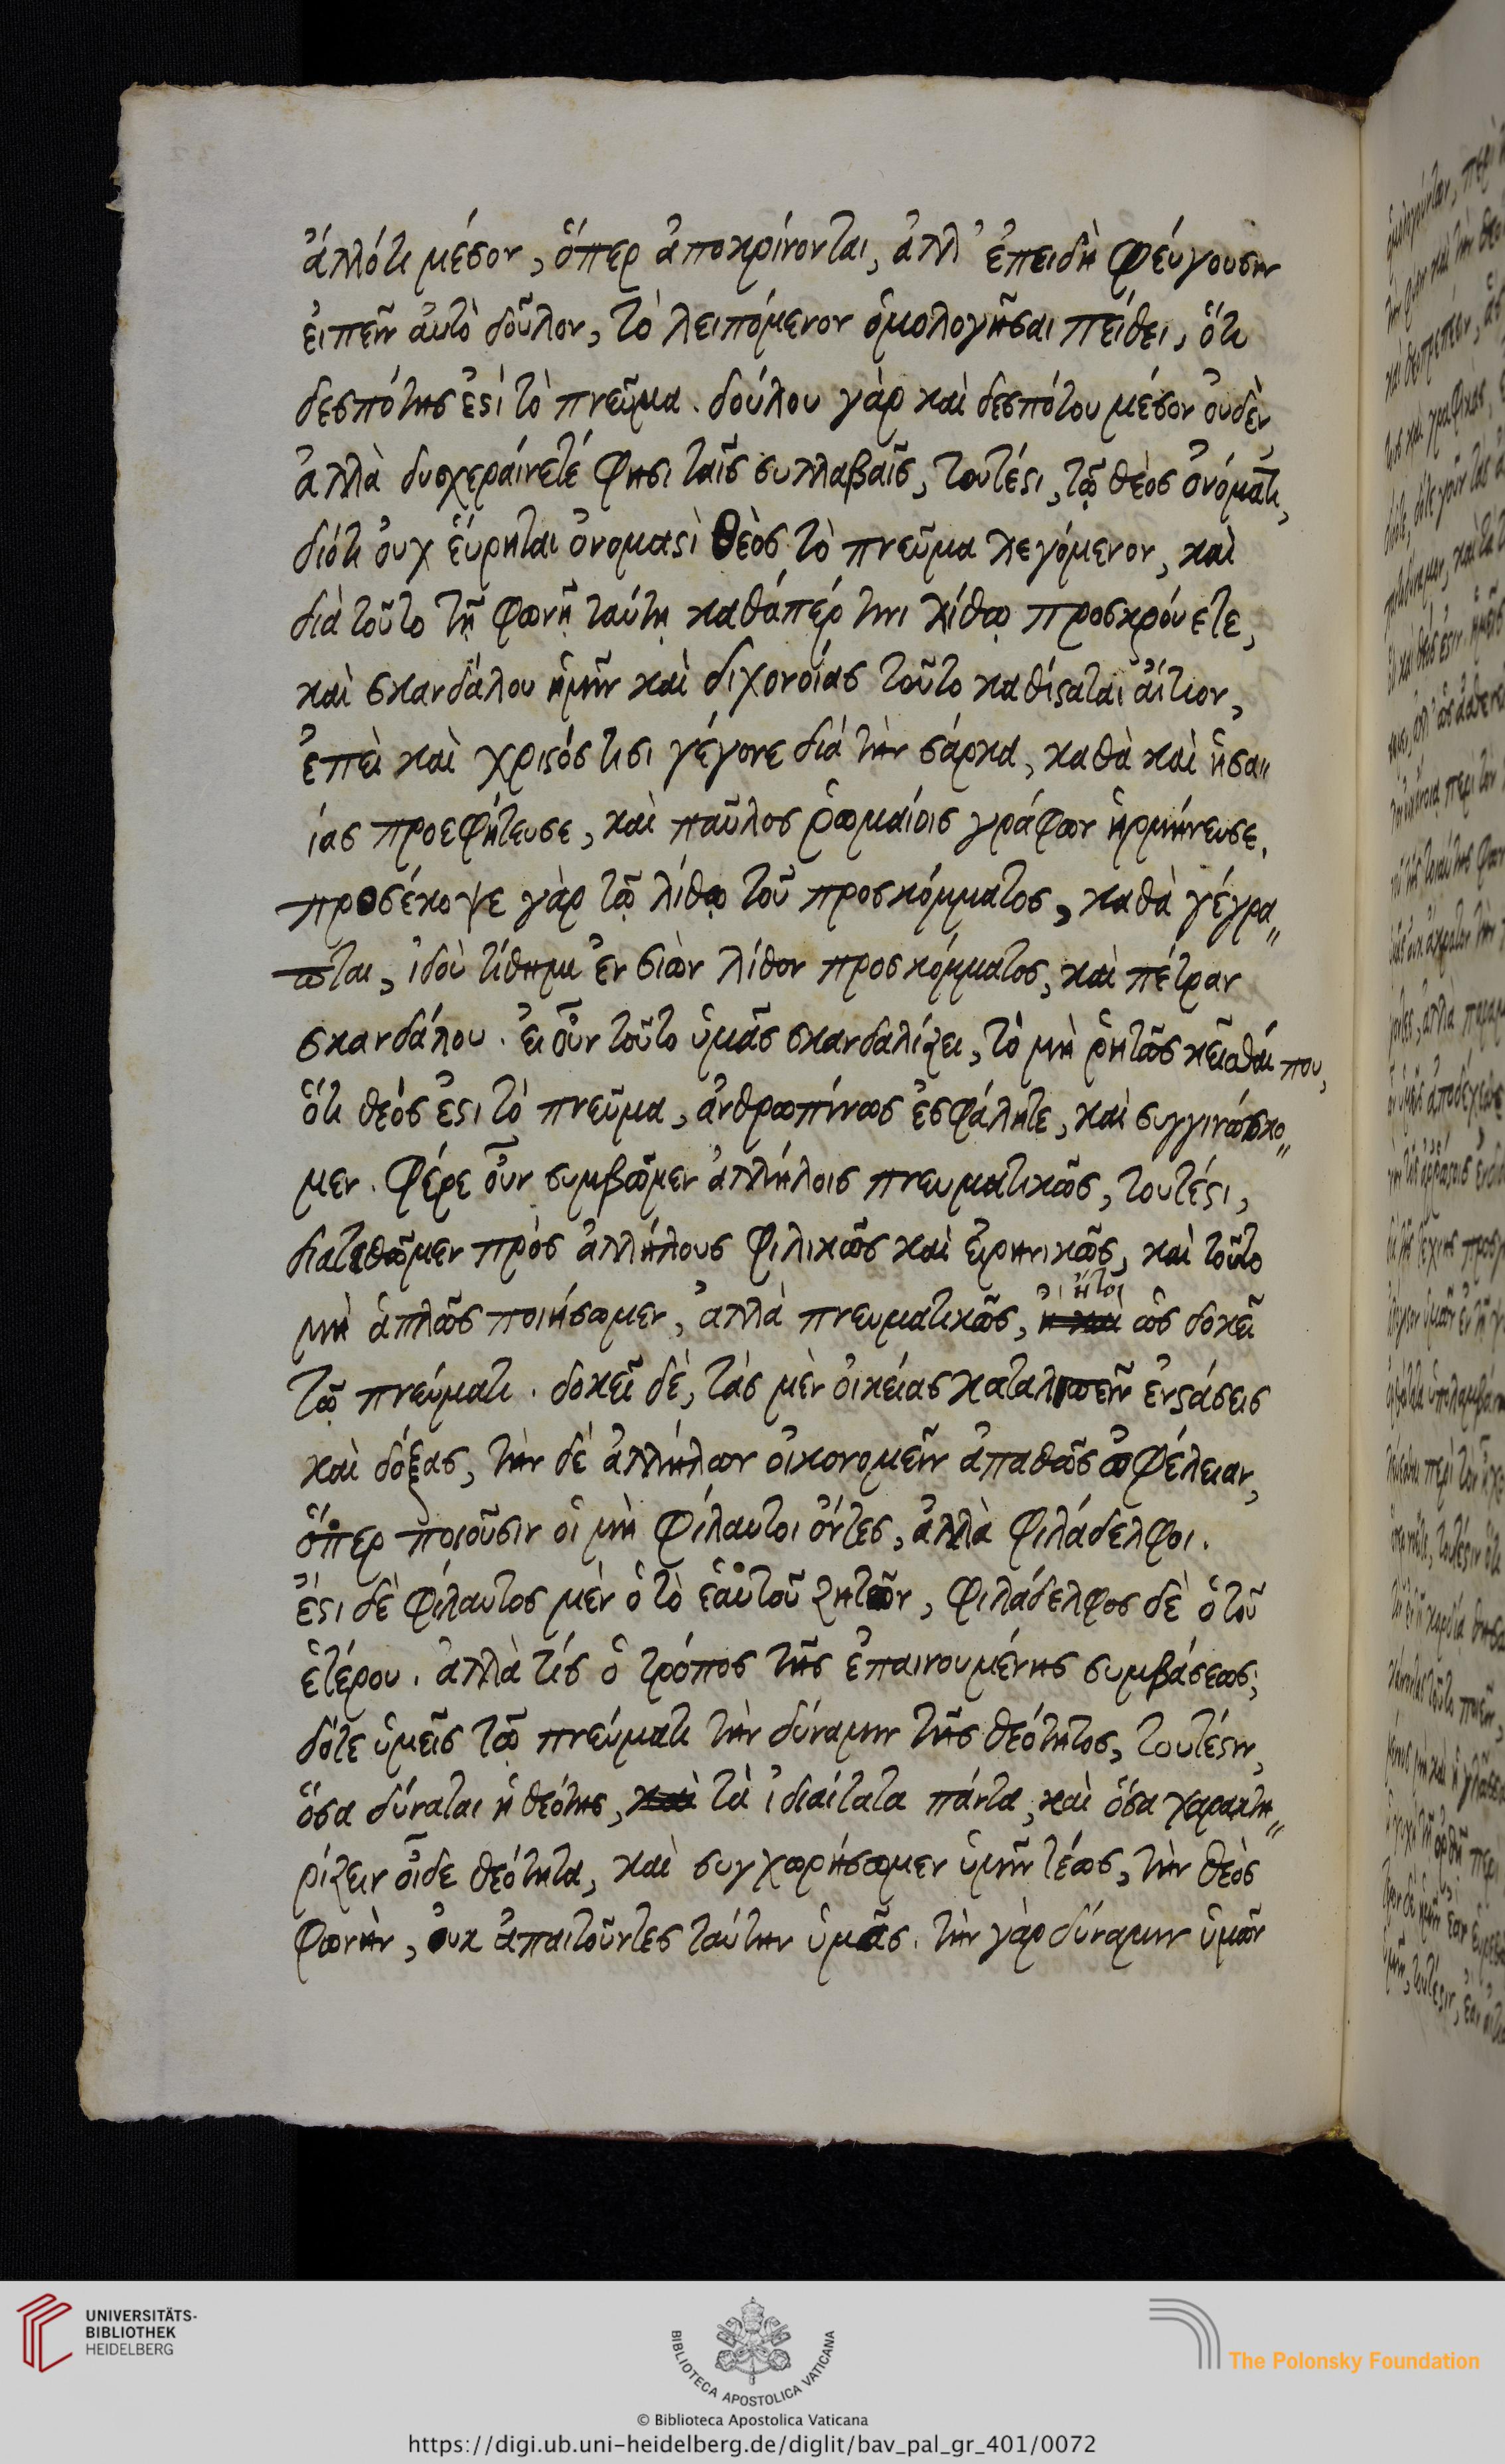 ἀλλότι μέσον, ὅπερ ἀποκρίνονται, ἀλλ' ἐπειδὴ φεύγουσιν
ἐιπεῖν ἀυτὸ δοῦλον, τὸ λειπόμενον ὁμολογῆσαι πείθει, ὅτι
δεσπότης ἐστὶ τὸ πνεῦμα. δούλου γὰρ καὶ δεσπότου μέσον ὀυδὲν,
ἀλλὰ δυσχεραίνετέ φησι ταῖς συλλαβαῖς, τουτέστι, τῷ θεὸς ὀνόματι,
διότι ὀυχ ἕυρηται ὀνομαστὶ θεὸς τὸ πνεῦμα λεγόμενον, καὶ
διὰ τοῦτο τῇ φωνῇ ταύτῃ καθάπέρ τινι λίθῳ προσκρούετε,
καὶ σκανδάλου ἡμῖν καὶ διχονοίας τοῦτο καθίσταται ἄιτιον,
ἐπεὶ καὶ χριστός τισι γέγονε διὰ τὴν σάρκα, καθὰ καὶ ἡσα"
ίας προεφήτευσε, καὶ παῦλος ῥωμαίοις γράφων ἡρμήνευσε.
προσέκοψε γὰρ τῷ λίθῳ τοῦ προσκόμματος, καθὰ γέγρα"
πται, ἰδοὺ τίθημι ἐν σιὼν λίθον προσκόμματος, καὶ πέτραν
σκανδάλου. ἐι οὖν τοῦτο ὑμᾶς σκανδαλίζει, τὸ μὴ ῥητῶς κεῖσθαί που,
ὅτι θεός ἐστι τὸ πνεῦμα, ἀνθρωπίνως ἐσφάλητε, καὶ συγγινώσκο"
μεν. φέρε οὖν συμβῶμεν ἀλλήλοις πνευματικῶς, τουτέστι,
διατεθῶμεν πρὸς ἀλλήλους φιλικῶς καὶ ἐιρηνικῶς, καὶ τοῦτο
μὴ ἁπλῶς ποιήσωμεν, ἀλλὰ πνευματικῶς, ἤτοι ὡς δοκεῖ
τῷ πνεύματι. δοκεῖ δὲ, τὰς μὲν ὀικείας καταλιπεῖν ἐνστάσεις
καὶ δόξας, τὴν δὲ ἀλλήλων ὀικονομεῖν ἀπαθῶς ὠφέλειαν,
ὅπερ ποιοῦσιν ὁι μὴ φίλαυτοι ὄντες, ἀλλὰ φιλάδελφοι.
ἔστι δὲ φίλαυτος μὲν ὁ τὸ ἑαυτοῦ ζητῶν, φιλάδελφος δὲ ὁ τοῦ
ἑτέρου. ἀλλὰ τίς ὁ τρόπος τῆς ἐπαινουμένης συμβάσεως;
δότε ὑμεῖς τῷ πνεύματι τὴν δύναμιν τῆς θεότητος, τουτέστιν,
ὅσα δύναται ἡ θεότης, τὰ ἰδιαίτατα πάντα, καὶ ὅσα χαρακτη"
ρίζειν οἶδε θεότητα, καὶ συγχωρήσωμεν ὑμῖν τέως, τὴν θεὸς
φωνὴν, ὀυκ ἀπαιτοῦντες ταύτην ὑμᾶς. τὴν γὰρ δύναμιν ὑμῶν
UNIVERSITÄTS-
BIBLIOTHEK
HEIDELBERG
BIBLIOTECA APOSTOLICA VATICANA
The Polonsky Foundation
© Biblioteca Apostolica Vaticana
https://digi.ub.uni-heidelberg.de/diglit/bav_pal_gr_401/0072